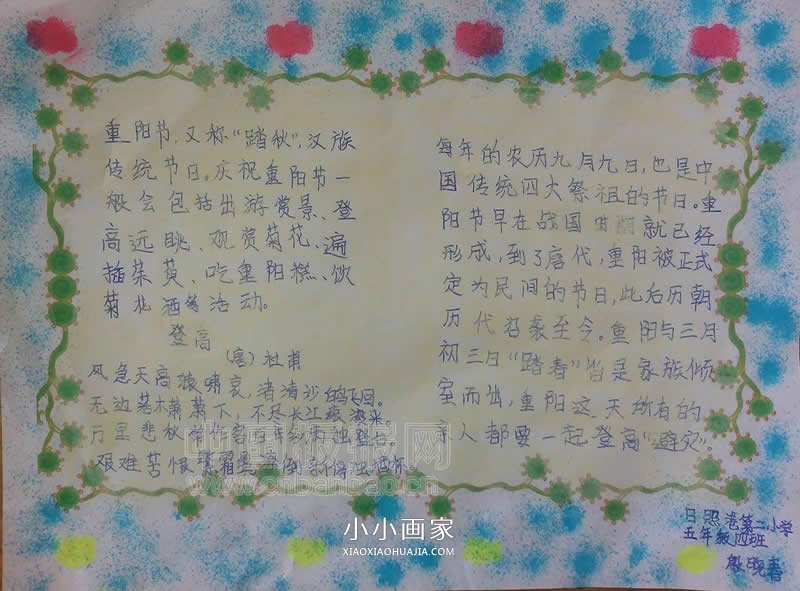 重阳节,又称"踏秋",汉族
传统节日。庆祝重阳节一
般会包括出游赏景、登
高远眺、观赏菊花、遍
插茱萸、吃重阳糕、饮
菊花酒等活动。
登高
(唐)杜甫
风急天高猿啸哀,渚清沙白鸟飞回。
无边落木萧萧下,不尽长江滚滚来。
万里悲秋常作客
艰难苦恨繁霜鬓 倒 浊酒杯
每年的农历九月九日,也是中
国传统四大祭祖的节日。重
阳节早在战国时期就已经
形成,到了唐代,重阳被正式
定为民间的节日,此后历朝
历代沿袭至今。重阳与三月
初三日"踏春"皆是家族倾
室而出,重阳这天所有的
亲人都要一起登高"避灾"。
日照港第二小学
五年级四班
晓春
中国板报网
www.cnbanbao.cn
小小画家
XIAOXIAOHUAJIA.COM